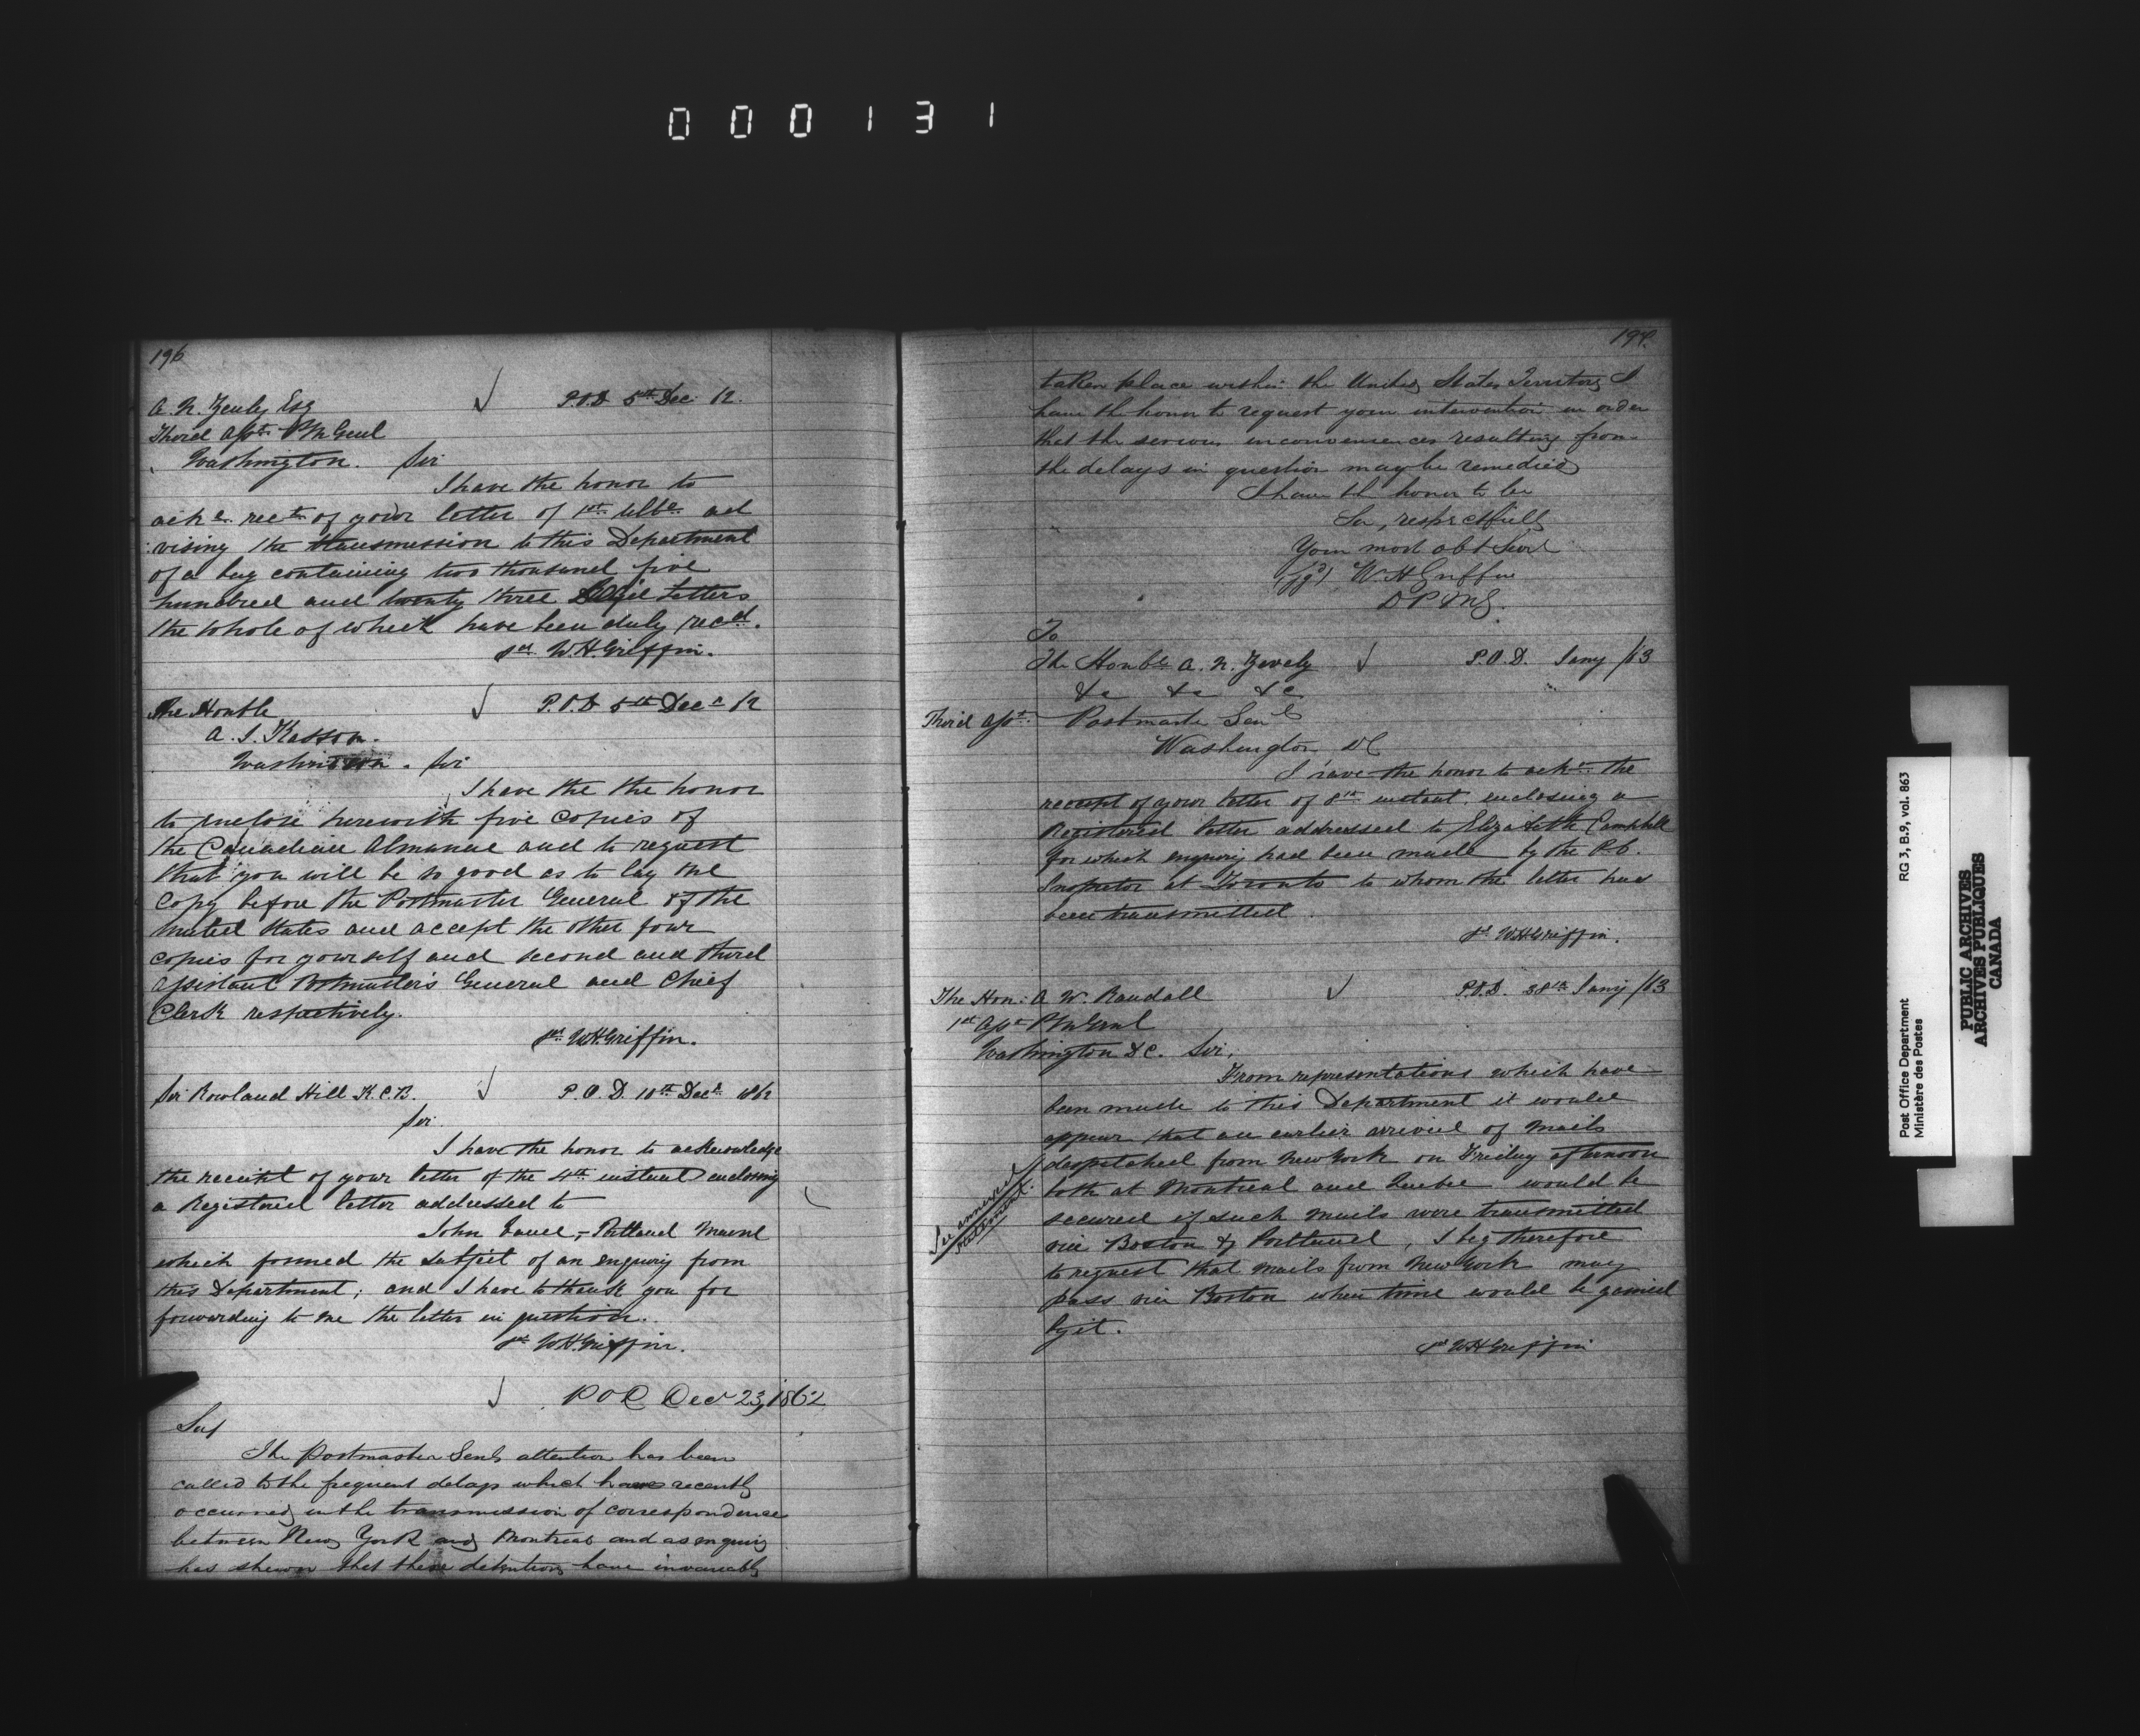 000131
196
A. N. Zevely Esq P.O.D 5th Dec 62.
Third Asst PMGenl
Washington. Sir
I have the honor to
ackn rect of your letter of 1st ad
vising the transmission to this Department
of a bag containing two thousand five
hundred and twenty three Letters
the whole of which have been duly recd.
sd W.H.Griffin.
The Honble P.O.D 5th Decr 62
A. J. Kasson.
Washington. Sir
I have the the honor
to enclose herewith five copies of
the Canadian Almanac and to request
that you will be so good as to lay one
Copy before the Postmaster General of the
United States and accept the other four
copies for yourself and second and third
Assistant Postmasters General and Chief
Clerk respectively.
sd W.H.Griffin.
Sir Rowland Hill K.C.B. P.O.D. 10th Decr 1862
Sir.
I have the honor to acknowledge
the receipt of your letter of the 4th instant enclosing
a Registered letter addressed to
John - Portland Maine
which formed the subject of an enquiry from
this Department; and I have to thank you for
forwarding to me the letter in question.
sd W.H.Griffin.
P O D Decr 23, 1862
Sir
The Postmaster Genls attention has been
called to the frequent delays which have recently
occurred in the transmission of correspondence
between New York and Montreal and as enquiry
has shewn that these detentions have invariably
197.
taken place within the United States Territory I
have the honor to request your intervention in order
that the serious inconveniences resulting from
the delays in question may be remedied
I have the honor to be
Sir, respectfully
Your most obt Servt
(sgd) W H Griffin
D P M G.
To
The Honble A. N. Zevely P.O.D. Jany /63
&c &c &c
Third Asst Postmaster Genl
Washington DC
I have the honor to ackn the
receipt of your letter of 8th instant, enclosing a
Registered letter addressed to Elizabeth Campbell
for which enquiry had been made by the P.O.
Inspector at Toronto to whom the letter has
been transmitted.
sd W.H.Griffin.
The Hon: A W. Randall P.O.D. 28th Jany /63
1st Asst PMGenl
Washington DC. Sir,
From representations which have
been made to this Department it would
appear that an earlier arrival of mails
despatched from New York on Friday afternoon
both at Montreal and Quebec would be
secured if such mails were transmitted
via Boston & Portland, I beg therefore
to request that mails from New York may
pass via Boston when time would be gained
by it.
sd W H Griffin
See annexed
statement.
Post Office Department RG 3, B.9, vol. 863
Ministère des Postes
PUBLIC ARCHIVES
ARCHIVES PUBLIQUES
CANADA